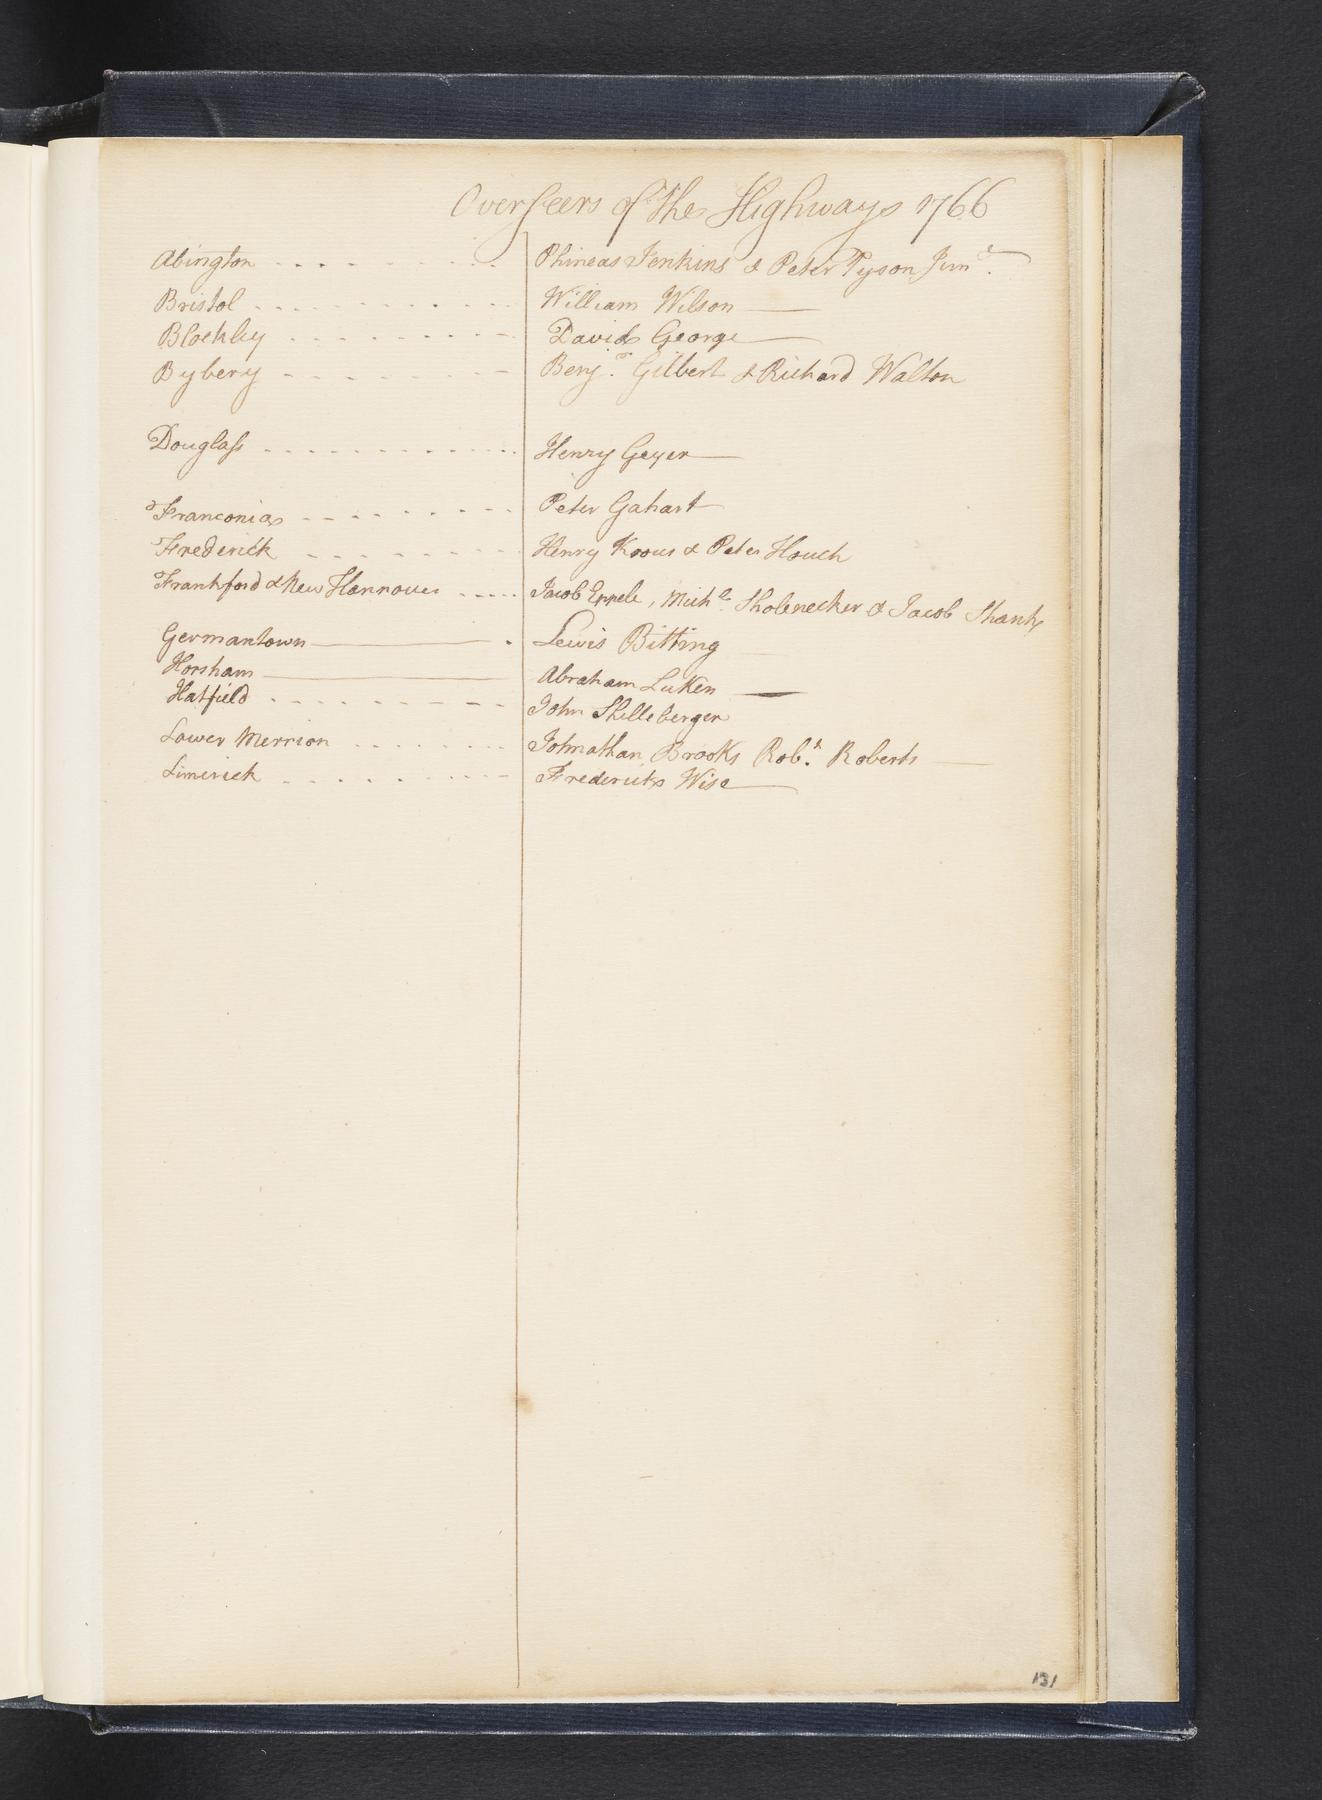 Overseers of the Highways 1766
Abington - - - - - - - - Phineas Jenkins & Peter Tyson Junr.
Bristol - - - - - - - - William Wilson
Blockley - - - - - - - - David George
Bybery - - - - - - - - Benjn. Gilbert & Richard Walton
Douglass - - - - - - - - Henry Geyer
Franconia - - - - - - - - Peter Gahart
Frederick - - - - - - - - Henry Krous & Peter Houch
Frankford & New Hannover - - - - - Jacob Eppele, Michl. Sholenecker & Jacob Shantz
Germantown Lewis Bitting
Horsham Abraham Luken
Hatfield - - - - - - - - John Shilleberger
Lower Merrion - - - - - - - - Johnathan Brooks Robt. Roberts
Limerick - - - - - - - - Frederick Wise
131